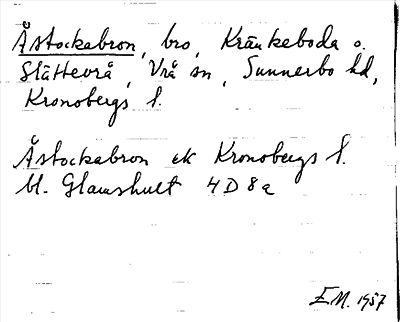 Åstockabron, bro, Kränkeboda o.
Slättevrå, Vrå sn, Sunnerbo hd,
Kronobergs l.
Åstockabron ek Kronobergs l.
bl. Glamshult 4 D 8 a
E.M. 1957